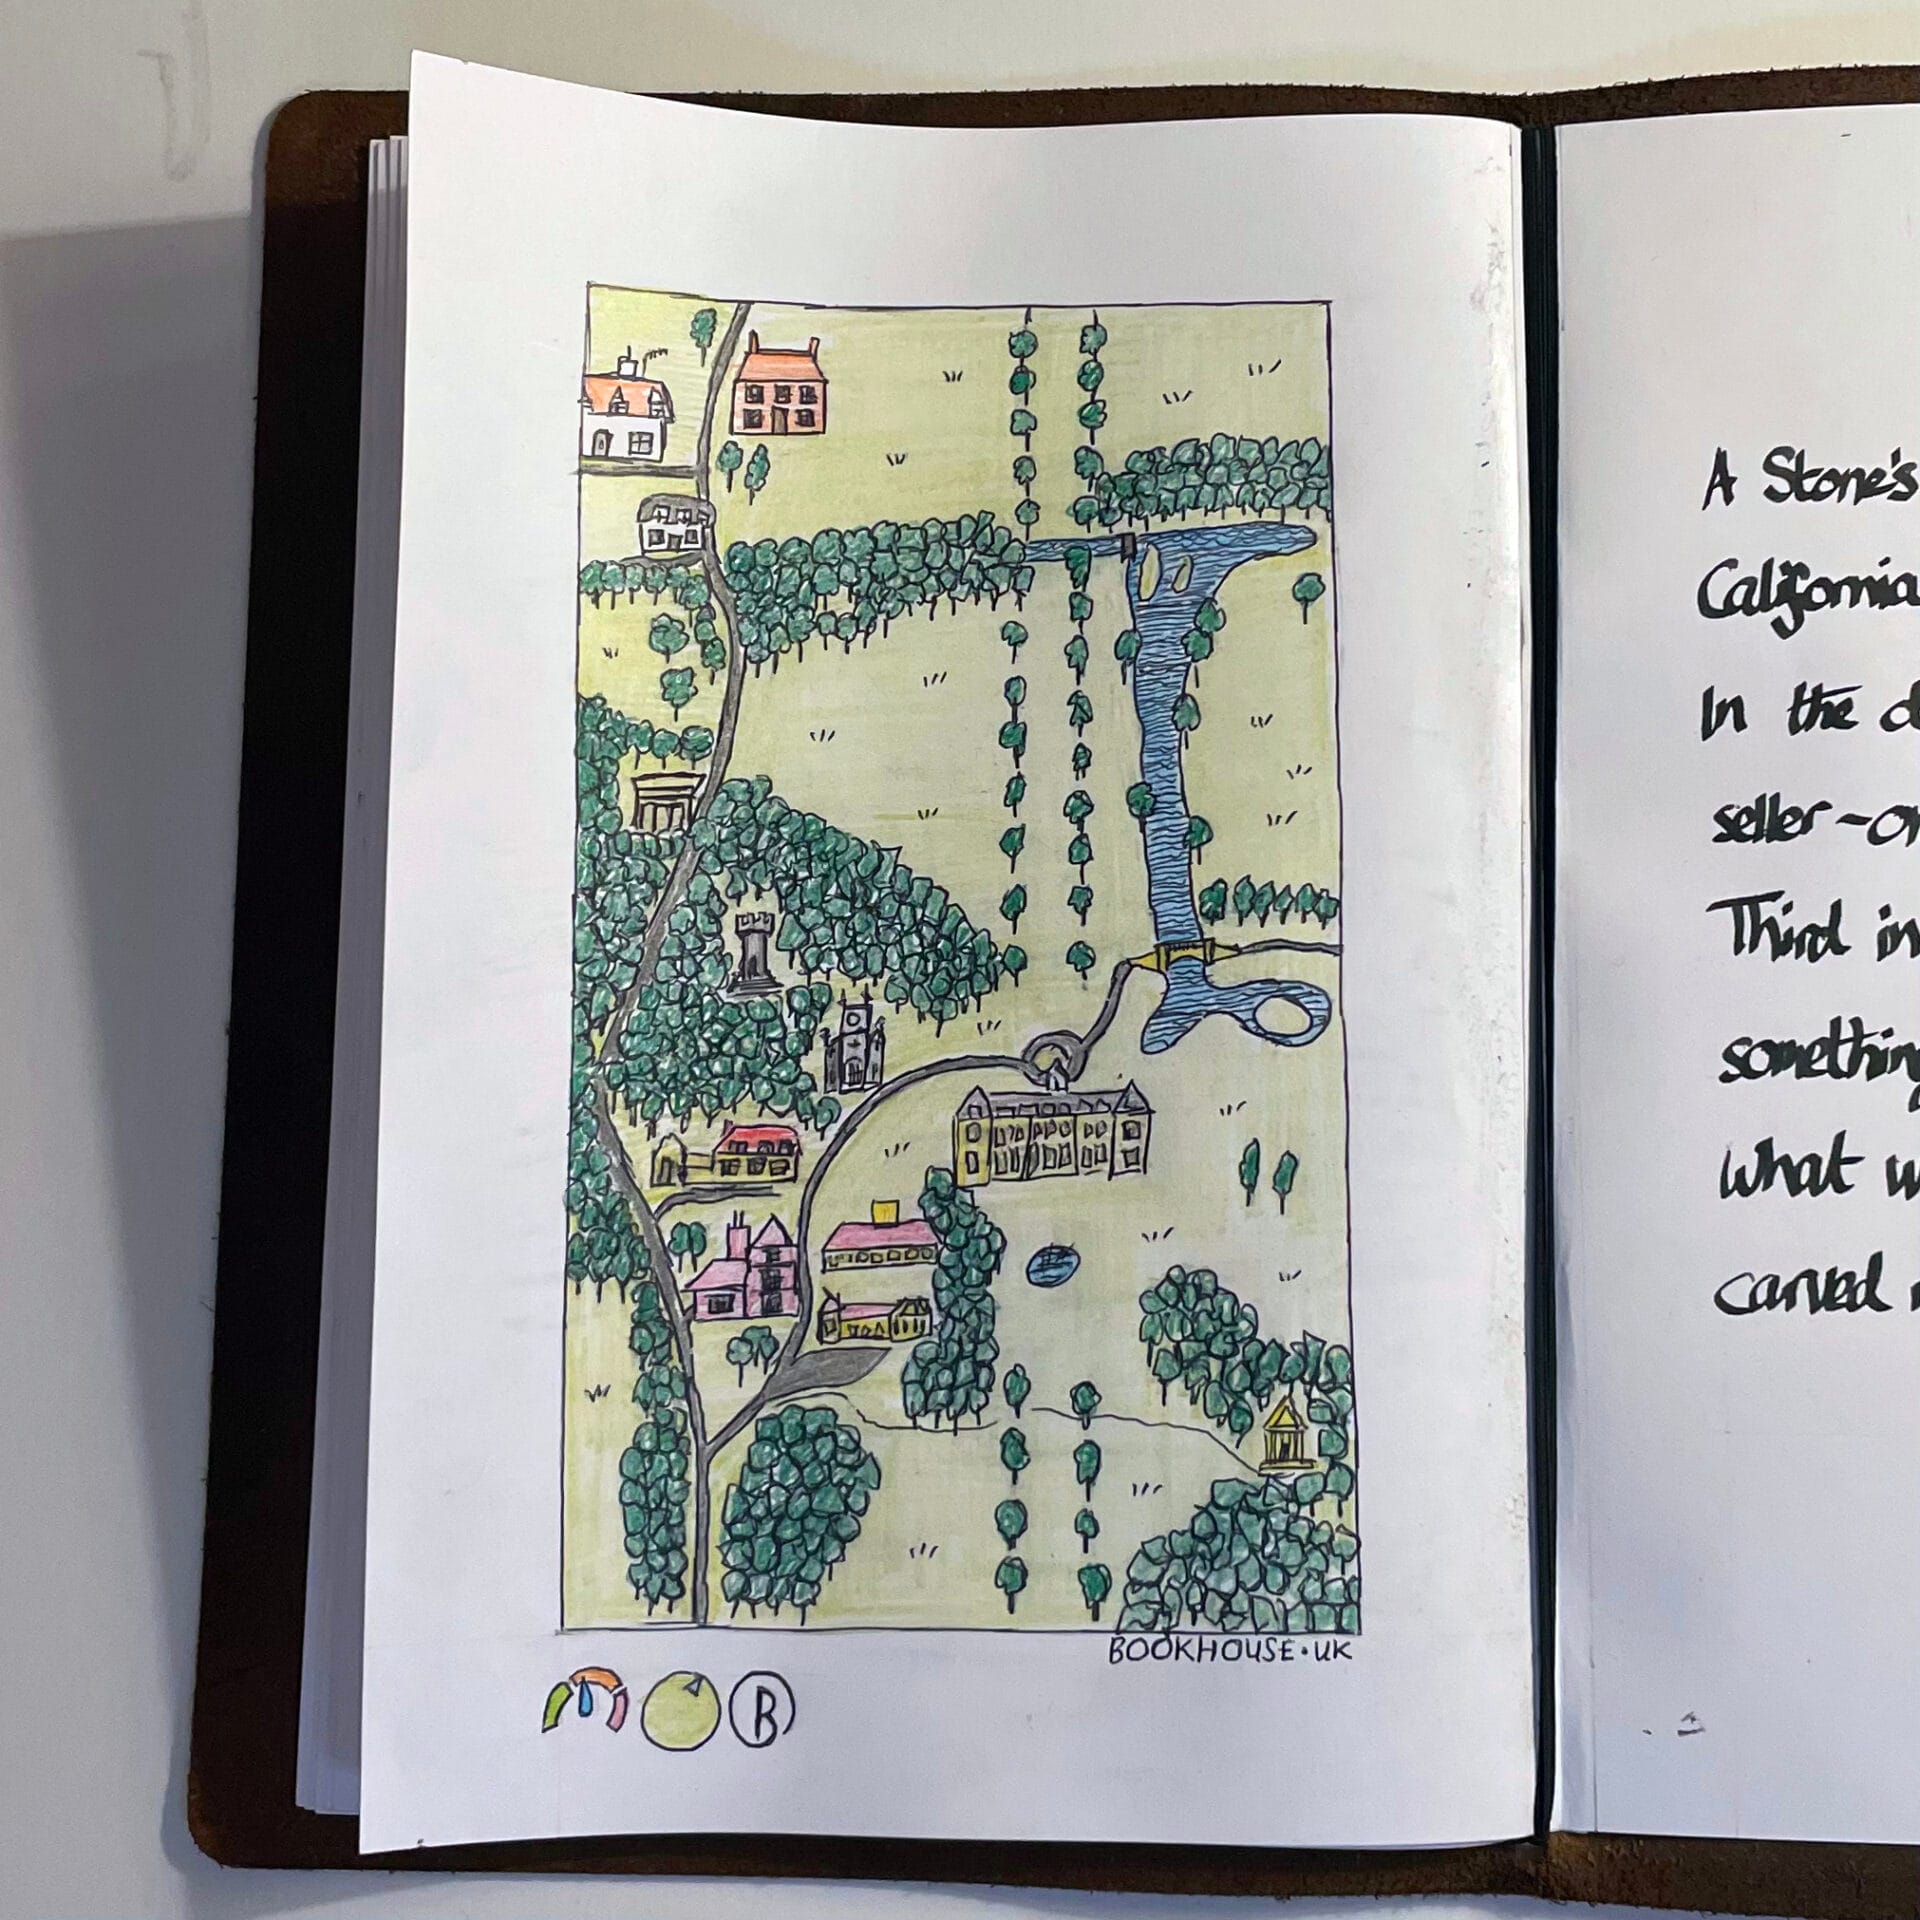 BOOKHOUSE·UK
B
A Stone's
California
In the
seller-
Third
something
What
carved